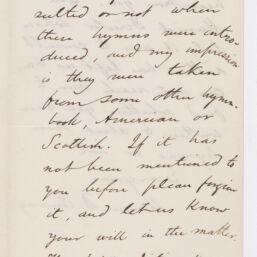 sulted or not when
these hymns were intro-
duced, and my impression
is they were taken
from some other hymn-
book, American or
Scottish. If it has
not been mentioned to
you before please forgive
it, and let us know
your will in the matter.